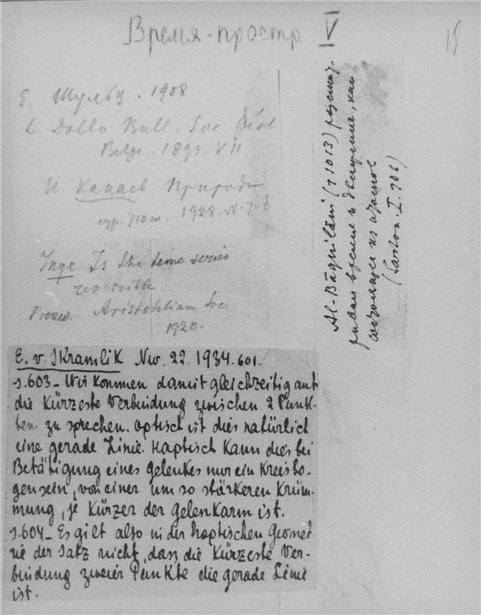 Время-простр. V
15
Е. Шульц. 1908
L. Dollo Bull. Soc. Géol
Belge. 1893. VII
И. Канаев Природа
1928. N-7-8
Inge Is the time series
reversible
Proceed. Aristotelian Soc.
1920.
Al-Bāqilāni (†1013)
времени и движение, как
из атомов
(Sarton. I. 706)
E. v. Skramlik Nw. 22. 1934. 601.
s.603 - Wir kommen damit gleichzeitig auf
die Kürzeste Verbindung zwischen 2 Punk-
ten zu sprechen. Optisch ist dies natürlich
eine gerade Linie. Haptisch kann dies bei
Betätigung eines Gelenkes nur ein Kreisbo-
gen sein, von einer um so stärkeren Krüm-
mung, je Kürzer der Gelenkarm ist.
s.604 - Es gilt also in der haptischen Geomet
rie der Satz nicht, dass die Kürzeste Ver-
bindung zweier Punkte die gerade Linie
ist.